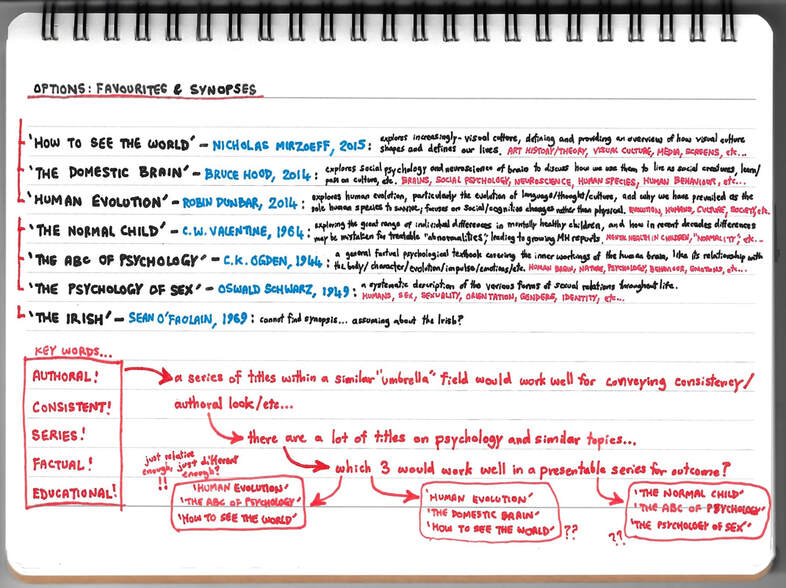 OPTIONS: FAVOURITES & SYNOPSES
'HOW TO SEE THE WORLD' – NICHOLAS MIRZOEFF, 2015: explores increasingly-visual culture, defining and providing an overview of how visual culture
shapes and defines our lives. ART HISTORY/THEORY, VISUAL CULTURE, MEDIA, SCREENS, etc...
'THE DOMESTIC BRAIN' – BRUCE HOOD, 2014: explores social psychology and neuroscience of brain to discuss how we use them to live as social creatures, learn/
pass on culture, etc. BRAINS, SOCIAL PSYCHOLOGY, NEUROSCIENCE, HUMAN SPECIES, HUMAN BEHAVIOUR, etc...
'HUMAN EVOLUTION' – ROBIN DUNBAR, 2014: explores human evolution, particularly the evolution of language/thought/culture, and why we have prevailed as the
sole human species to survive; focuses on social/cognitive changes rather than physical. EVOLUTION, HUMANS, CULTURE, SOCIETY, etc.
'THE NORMAL CHILD' – C.W. VALENTINE, 1964: exploring the great range of individual differences in mentally healthy children, and how in recent decades differences
may be mistaken for treatable "abnormalities", leading to growing MH reports. MENTAL HEALTH IN CHILDREN, "NORMALITY", etc...
'THE ABC OF PSYCHOLOGY' – C.K. OGDEN, 1944: a general factual psychological textbook covering the inner workings of the human brain, like its relationship with
the body/character/evolution/impulse/emotions/etc. HUMAN BRAIN, NATURE, PSYCHOLOGY, BEHAVIOUR, EMOTIONS, etc...
'THE PSYCHOLOGY OF SEX' – OSWALD SCHWARZ, 1949: a systematic description of the various forms of sexual relations throughout life.
HUMANS, SEX, SEXUALITY, ORIENTATION, GENDERS, IDENTITY, etc...
'THE IRISH' – SEAN O'FAOLAIN, 1969: cannot find synopsis... assuming about the Irish?
KEY WORDS...
AUTHORAL!
CONSISTENT!
SERIES!
FACTUAL!
EDUCATIONAL!
a series of titles within a similar "umbrella" field would work well for conveying consistency/
authoral look/etc...
there are a lot of titles on psychology and similar topics...
which 3 would work well in a presentable series for outcome?
just relative
enough, just different
enough?
!!
'HUMAN EVOLUTION'
'THE ABC OF PSYCHOLOGY'
'HOW TO SEE THE WORLD'
'HUMAN EVOLUTION'
'THE DOMESTIC BRAIN'
'HOW TO SEE THE WORLD'
??
'THE NORMAL CHILD'
'THE ABC OF PSYCHOLOGY'
'THE PSYCHOLOGY OF SEX'
??